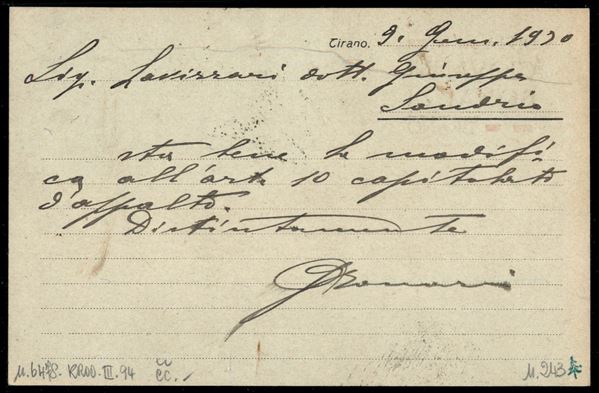 Tirano, 9. Gen. 1930
Sig. Lavizzari dott. Giuseppe
Sondrio
sta bene la modifi-
ca all'art. 10 capitolato
d'appalto.
Distintamente
M. 243